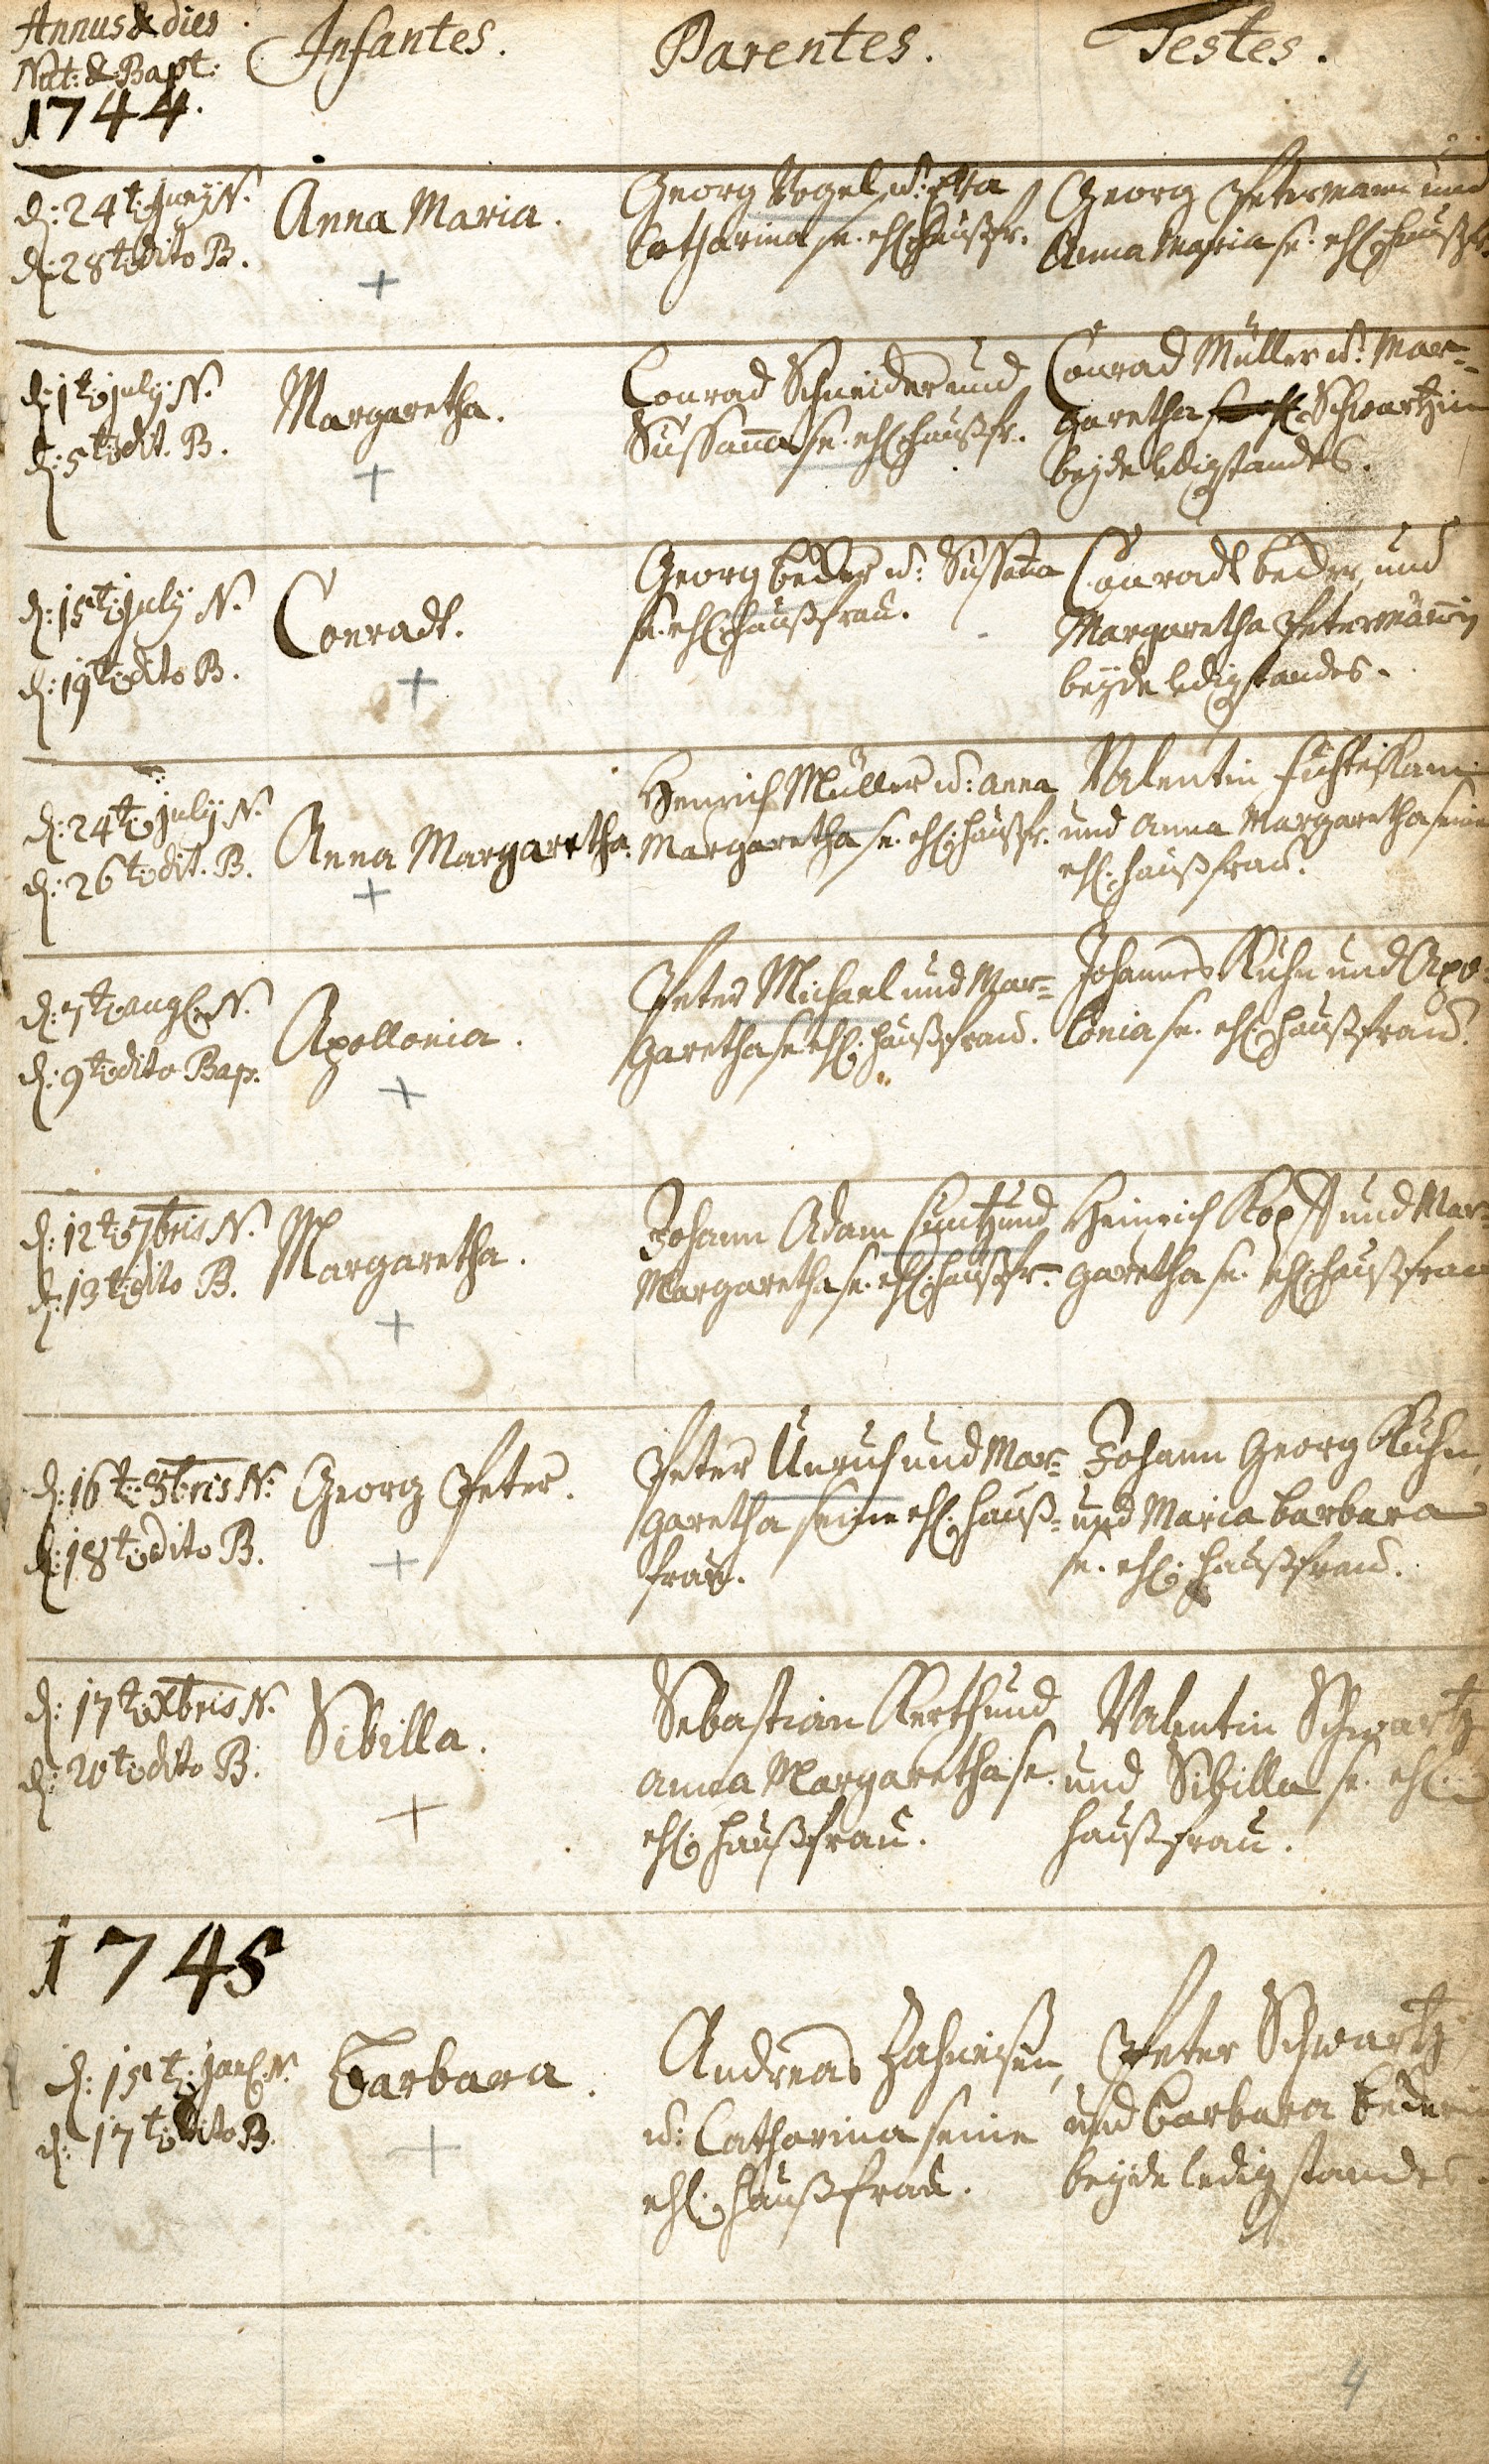 Annus & dies
Nat: & Bapt:
1744.
Infantes.
Parentes.
Testes.
d: 24t: Juny N.
d: 28t: dito B.
Anna Maria.
Georg Vogel u: Eva
Catharina se. ehl: haußfr.
Georg Petermann und
Anna Maria se. ehl: haußfr.
d: 1t: july N.
d: 5t: dit. B.
Margaretha.
Conrad Schneider und
Sussanna se. ehl: haußfr.
Conrad Müller u: Mar-
garetha Schwartzin
beyde ledigstandes.
d: 15t: july N.
d: 19t: dito B.
Conradt.
Georg beder u: Sussana
se. ehl: haußfrau.
Conradt beder, und
Margaretha Petermännin
beyde ledigstandes.
d: 24t: july N.
d: 26t: dit. B.
Anna Margaretha.
Henrich Müller u: anna
Margaretha se. ehl: haußfr.
Valentin
und Anna Margaretha seine
ehl: haußfrau.
d: 7t: aug: N.
d: 9t: dito Bap.
Apollonia.
Peter Michael und Mar-
garetha se. ehl: haußfrau.
Johannes Kuhn und Apo-
lonia se. ehl: haußfrau.
d: 12t: 7bris N.
d: 13t: dito B.
Margaretha.
Johann Adam Cuntz und
Margaretha se. ehl: haußfr.
Heinrich Kopff und Mar-
garetha se. ehl: haußfrau
d: 16t: 8bris N.
d: 18t: dito B.
Georg Peter.
Peter Unruh und Mar-
garetha seine ehl: hauß-
frau.
Johann Georg Kuhn,
und Maria barbara
se. ehl: haußfrau.
d: 17t: Xbris N.
d: 20t: dito B.
Sibilla.
Sebastian Kerth und
anna Margaretha se.
ehl: haußfrau.
Valentin Schwartz
und Sibilla se. ehl:
haußfrau.
1745
d: 15t: jan: N.
d: 17t: dito B.
Barbara.
Andreas Zahneisen,
u: Catharina seine
ehl: haußfrau.
Peter Schwartz
und barbara bederin
beyde ledig standes.
4